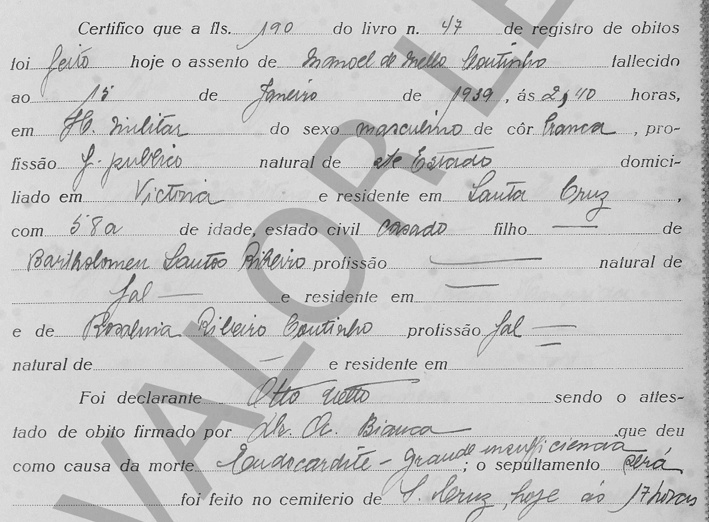 Certifico que a fls. 190 do livro n. 47 de registro de obitos
foi feito hoje o assento de Manoel de Mello Coutinho fallecido
ao 15 de Janeiro de 1939, ás 2,40 horas,
em H. Militar do sexo masculino de côr branca, pro-
fissão f. publico natural de ste Estado domici-
liado em Victoria e residente em Santa Cruz,
com 58 a de idade, estado civil casado filho de
Bartholomeu Santos Ribeiro profissão natural de
fal e residente em
e de Rosalina Ribeiro Coutinho profissão fal
natural de e residente em
Foi declarante Otto Netto sendo o attes-
tado de obito firmado por dr. A. Bianca que deu
como causa da morte Endocardite - grande insufficiencia; o sepultamento será
foi feito no cemiterio de S. Cruz, hoje ás 17 horas
VALOR LE